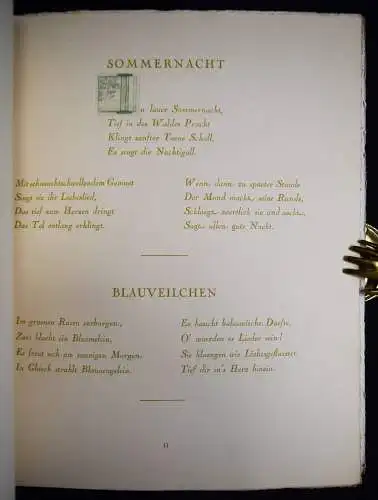 SOMMERNACHT
n lauer Sommernacht,
Tief in des Waldes Pracht
Klingt sanfter Toene Schall,
Es singt die Nachtigall.
Mit sehnsuchtschwellendem Gemuet
Singt sie ihr Liebeslied,
Das tief zum Herzen dringt
Das Tal entlang erklingt.
Wenn dann zu spaeter Stunde
Der Mond macht seine Runde,
Schluegt zaertlich sie und sacht,
Sagt allen gute Nacht.
BLAUVEILCHEN
Im gruenen Rasen verborgen,
Zart blueht ein Bluemelein,
Es freut sich am sonnigen Morgen,
In Glueck strahlt Blauaeugelein.
Es haucht balsamische Duefte,
O' wuerden es Lieder sein!
Sie klaengen wie Liebesgefluester
Tief dir in's Herz hinein.
11